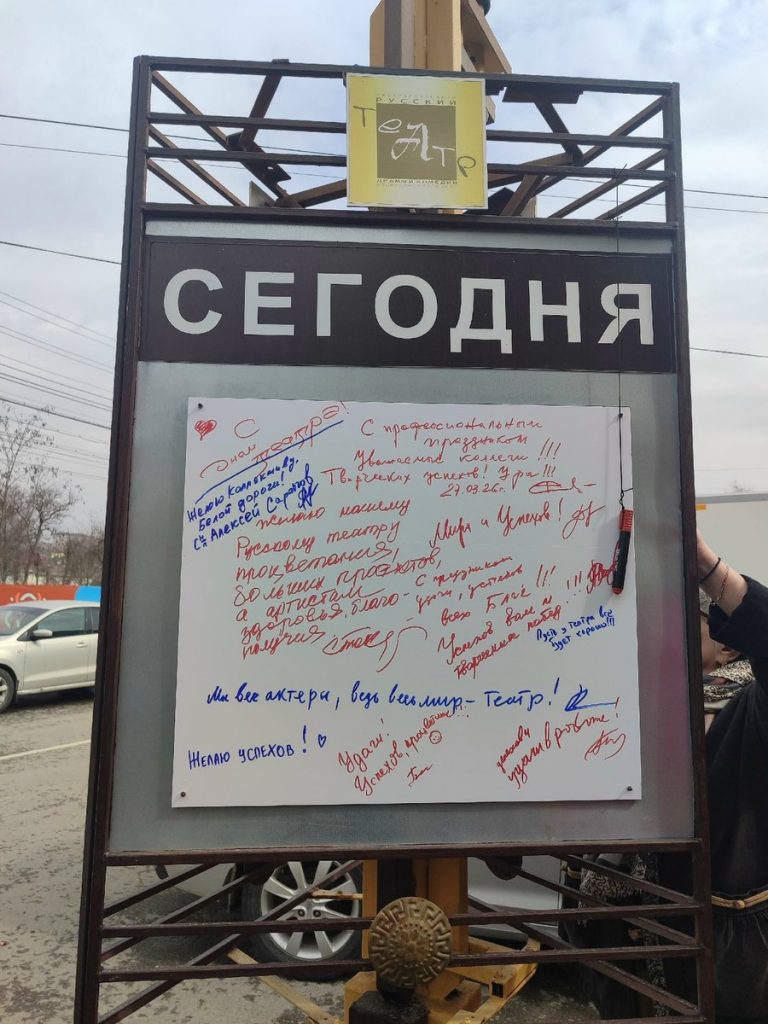 РУССКИЙ
ТеАтр
ДРАМЫ И КОМЕДИИ
СЕГОДНЯ
С
днем
театра!
Желаю коллективу,
Белой дороги!
Алексей
С профессиональным
праздником
Уважаемые коллеги!!!
Творческих успехов! Ура!!!
27.03.26г.
Желаю нашему
Русскому театру
процветания,
больших проектов,
а артистам
здоровья, благо-
получия
Мира и Успехов!
С праздником
удачи, успехов
всех Благ!!!
Успехов вам и
творческих побед!!!
Пусть у театра всё
будет хорошо!!!
Мы все актеры, ведь весь мир - театр!
Желаю успехов!
Удачи!
Успехов,
успехов и
удачи в работе!